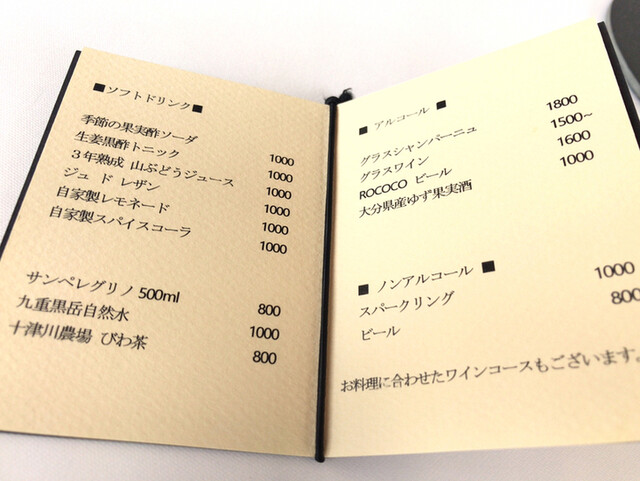 ■ソフトドリンク■
季節の果実酢ソーダ 1000
生姜黒酢トニック 1000
３年熟成 山ぶどうジュース 1000
ジュ ド レザン 1000
自家製レモネード 1000
自家製スパイスコーラ 1000
サンペレグリノ 500ml 800
九重黒岳自然水 1000
十津川農場 びわ茶 800
■ アルコール ■
グラスシャンパーニュ 1800
グラスワイン 1500~
ROCOCO ビール 1600
大分県産ゆず果実酒 1000
■ ノンアルコール ■
スパークリング 1000
ビール 800
お料理に合わせたワインコースもございます。